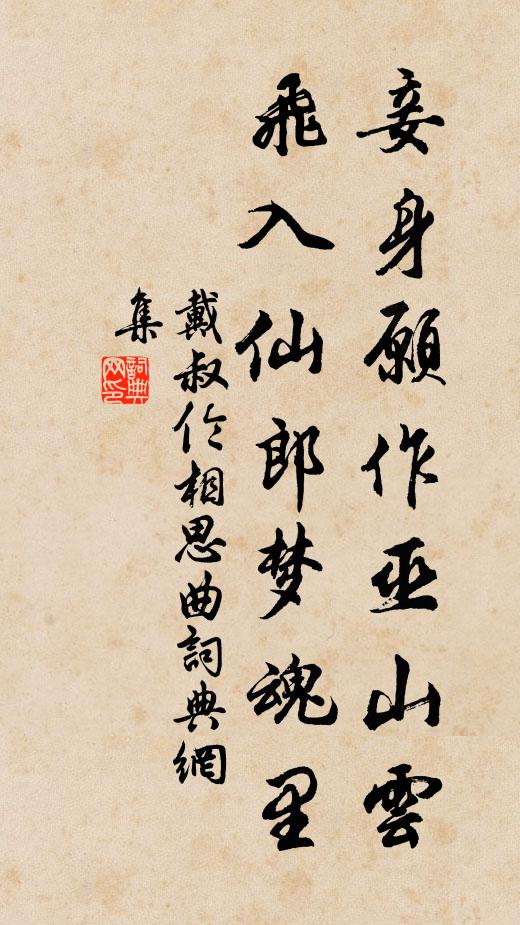 妾身願作巫山雲
飛入仙郎梦魂里
戴叔伦相思曲詞典網
集
詞典
网印